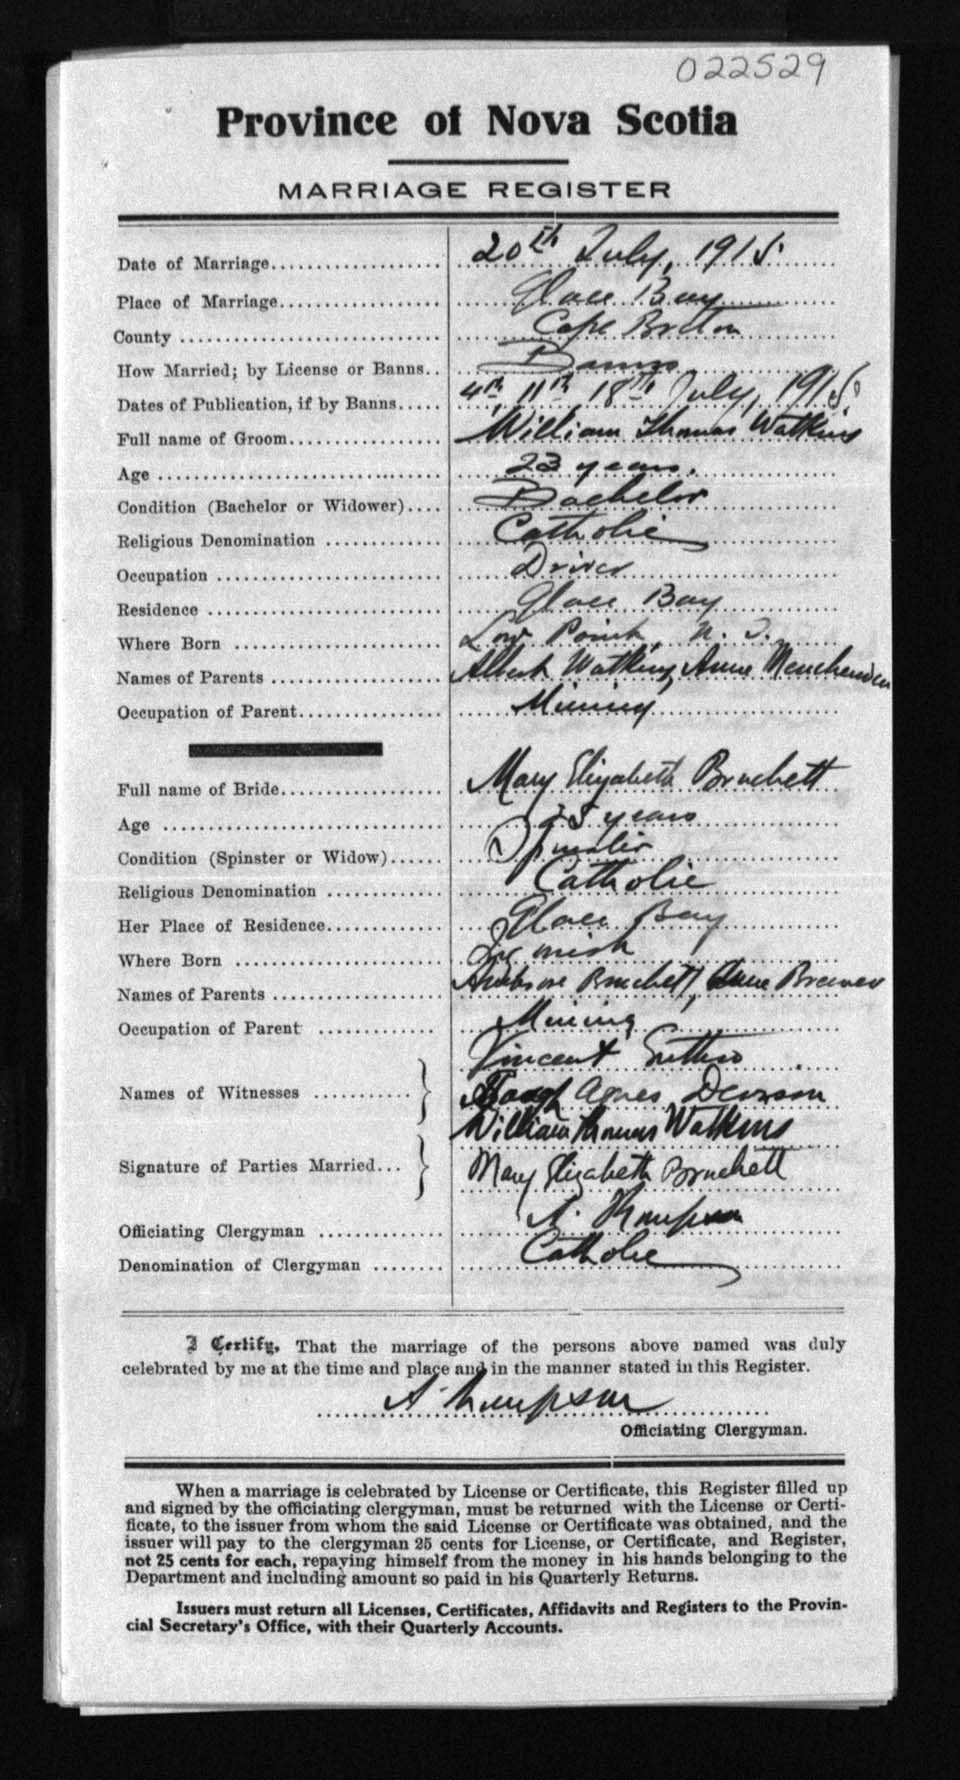 022529
Province of Nova Scotia
MARRIAGE REGISTER
Date of Marriage 20th July, 1915.
Place of Marriage Glace Bay
County Cape Breton
How Married; by License or Banns Banns
Dates of Publication, if by Banns 4th, 11th, 18th July, 1915.
Full name of Groom William Thomas Watkins
Age 23 years.
Condition (Bachelor or Widower) Bachelor
Religious Denomination Catholic
Occupation Driver
Residence Glace Bay
Where Born Low Point,
Names of Parents Albert Watkins, Anne
Occupation of Parent Mining
Full name of Bride Mary Elizabeth Bruchett
Age 25 years
Condition (Spinster or Widow) Spinster
Religious Denomination Catholic
Her Place of Residence Glace Bay
Where Born
Names of Parents Ambrose Bruchett, Anne Brewer
Occupation of Parent Mining
Vincent
Names of Witnesses Agnes
William Thomas Watkins
Signature of Parties Married Mary Elizabeth Bruchett
Officiating Clergyman A. Thompson
Denomination of Clergyman Catholic
I Certify, That the marriage of the persons above named was duly
celebrated by me at the time and place and in the manner stated in this Register.
A Thompson
Officiating Clergyman.
When a marriage is celebrated by License or Certificate, this Register filled up
and signed by the officiating clergyman, must be returned with the License or Certi-
ficate, to the issuer from whom the said License or Certificate was obtained, and the
issuer will pay to the clergyman 25 cents for License, or Certificate, and Register,
not 25 cents for each, repaying himself from the money in his hands belonging to the
Department and including amount so paid in his Quarterly Returns.
Issuers must return all Licenses, Certificates, Affidavits and Registers to the Provin-
cial Secretary's Office, with their Quarterly Accounts.